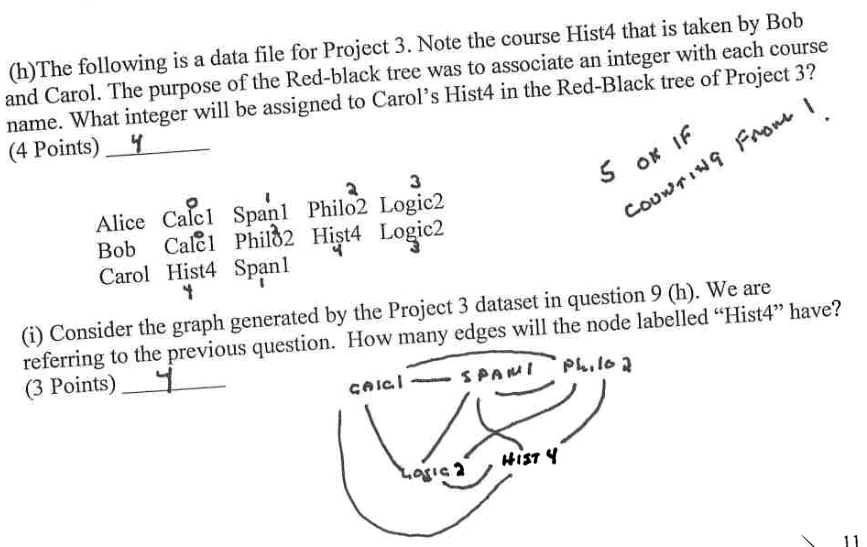 (h)The following is a data file for Project 3. Note the course Hist4 that is taken by Bob
and Carol. The purpose of the Red-black tree was to associate an integer with each course
name. What integer will be assigned to Carol's Hist4 in the Red-Black tree of Project 3?
(4 Points) 4
5 OK IF
COUNTING FROM 1.
0 1 2 3
Alice Calc1 Span1 Philo2 Logic2
Bob Calc1 Philo2 Hist4 Logic2
0 2 4 3
Carol Hist4 Span1
4 1
(i) Consider the graph generated by the Project 3 dataset in question 9 (h). We are
referring to the previous question. How many edges will the node labelled “Hist4” have?
(3 Points) 4
CALC1 SPAN1 Philo2
LOGIC2 HIST4
11